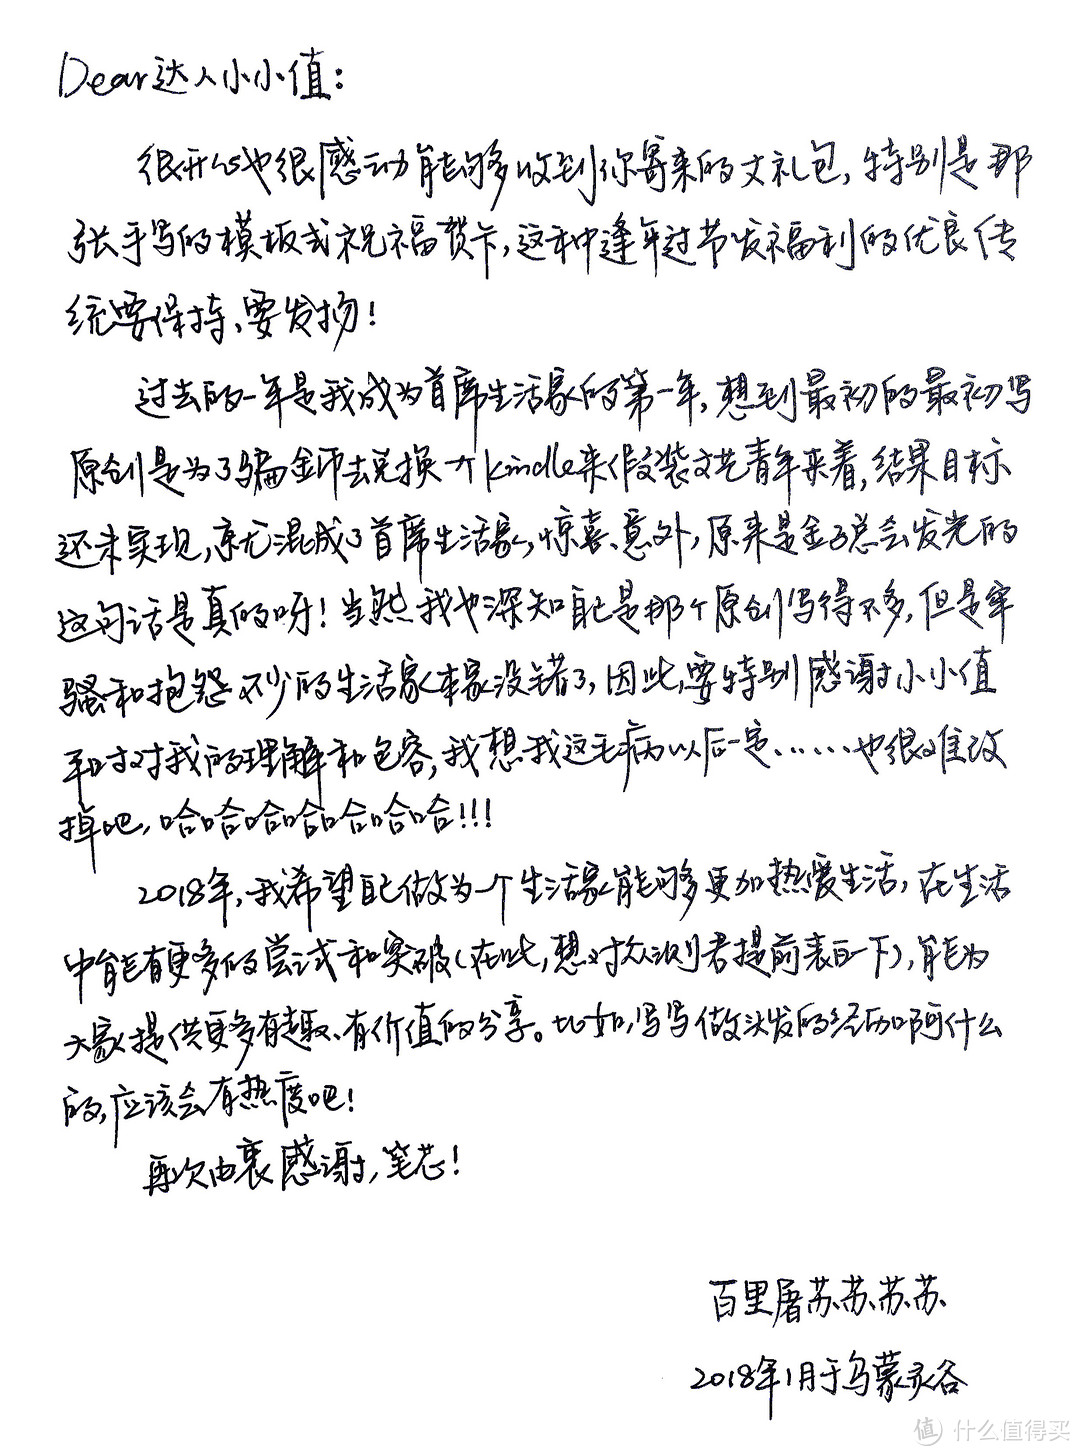 Dear达人小小值：
很开心也很感动能够收到你寄来的大礼包，特别是那
张手写的模板式祝福贺卡，这种逢年过节发福利的优良传
统要保持、要发扬！
过去的一年是我成为首席生活家的第一年，想到最初的最初写
原创是为了骗金币去兑换一个kindle来假装文艺青年来着，结果目标
还未实现，就先混成了首席生活家，惊喜、意外，原来是金子总会发光的
这句话是真的呀！当然我也深知自己是那个原创写得不多，但是牢
骚和抱怨不少的生活家本家没错了，因此，要特别感谢小小值
平时对我的理解和包容，我想我这毛病以后一定……也很难改
掉吧，哈哈哈哈哈哈哈!!!
2018年，我希望自己做为一个生活家能够更加热爱生活，在生活
中能有更多的尝试和突破（在此，想对众测君提前表白一下），能为
大家提供更多有趣、有价值的分享。比如，写写做头发的经历啊什么
的，应该会有热度吧！
再次由衷感谢，笔芯！
百里屠苏.苏.苏.苏.
2018年1月于乌蒙灵谷
值 什么值得买